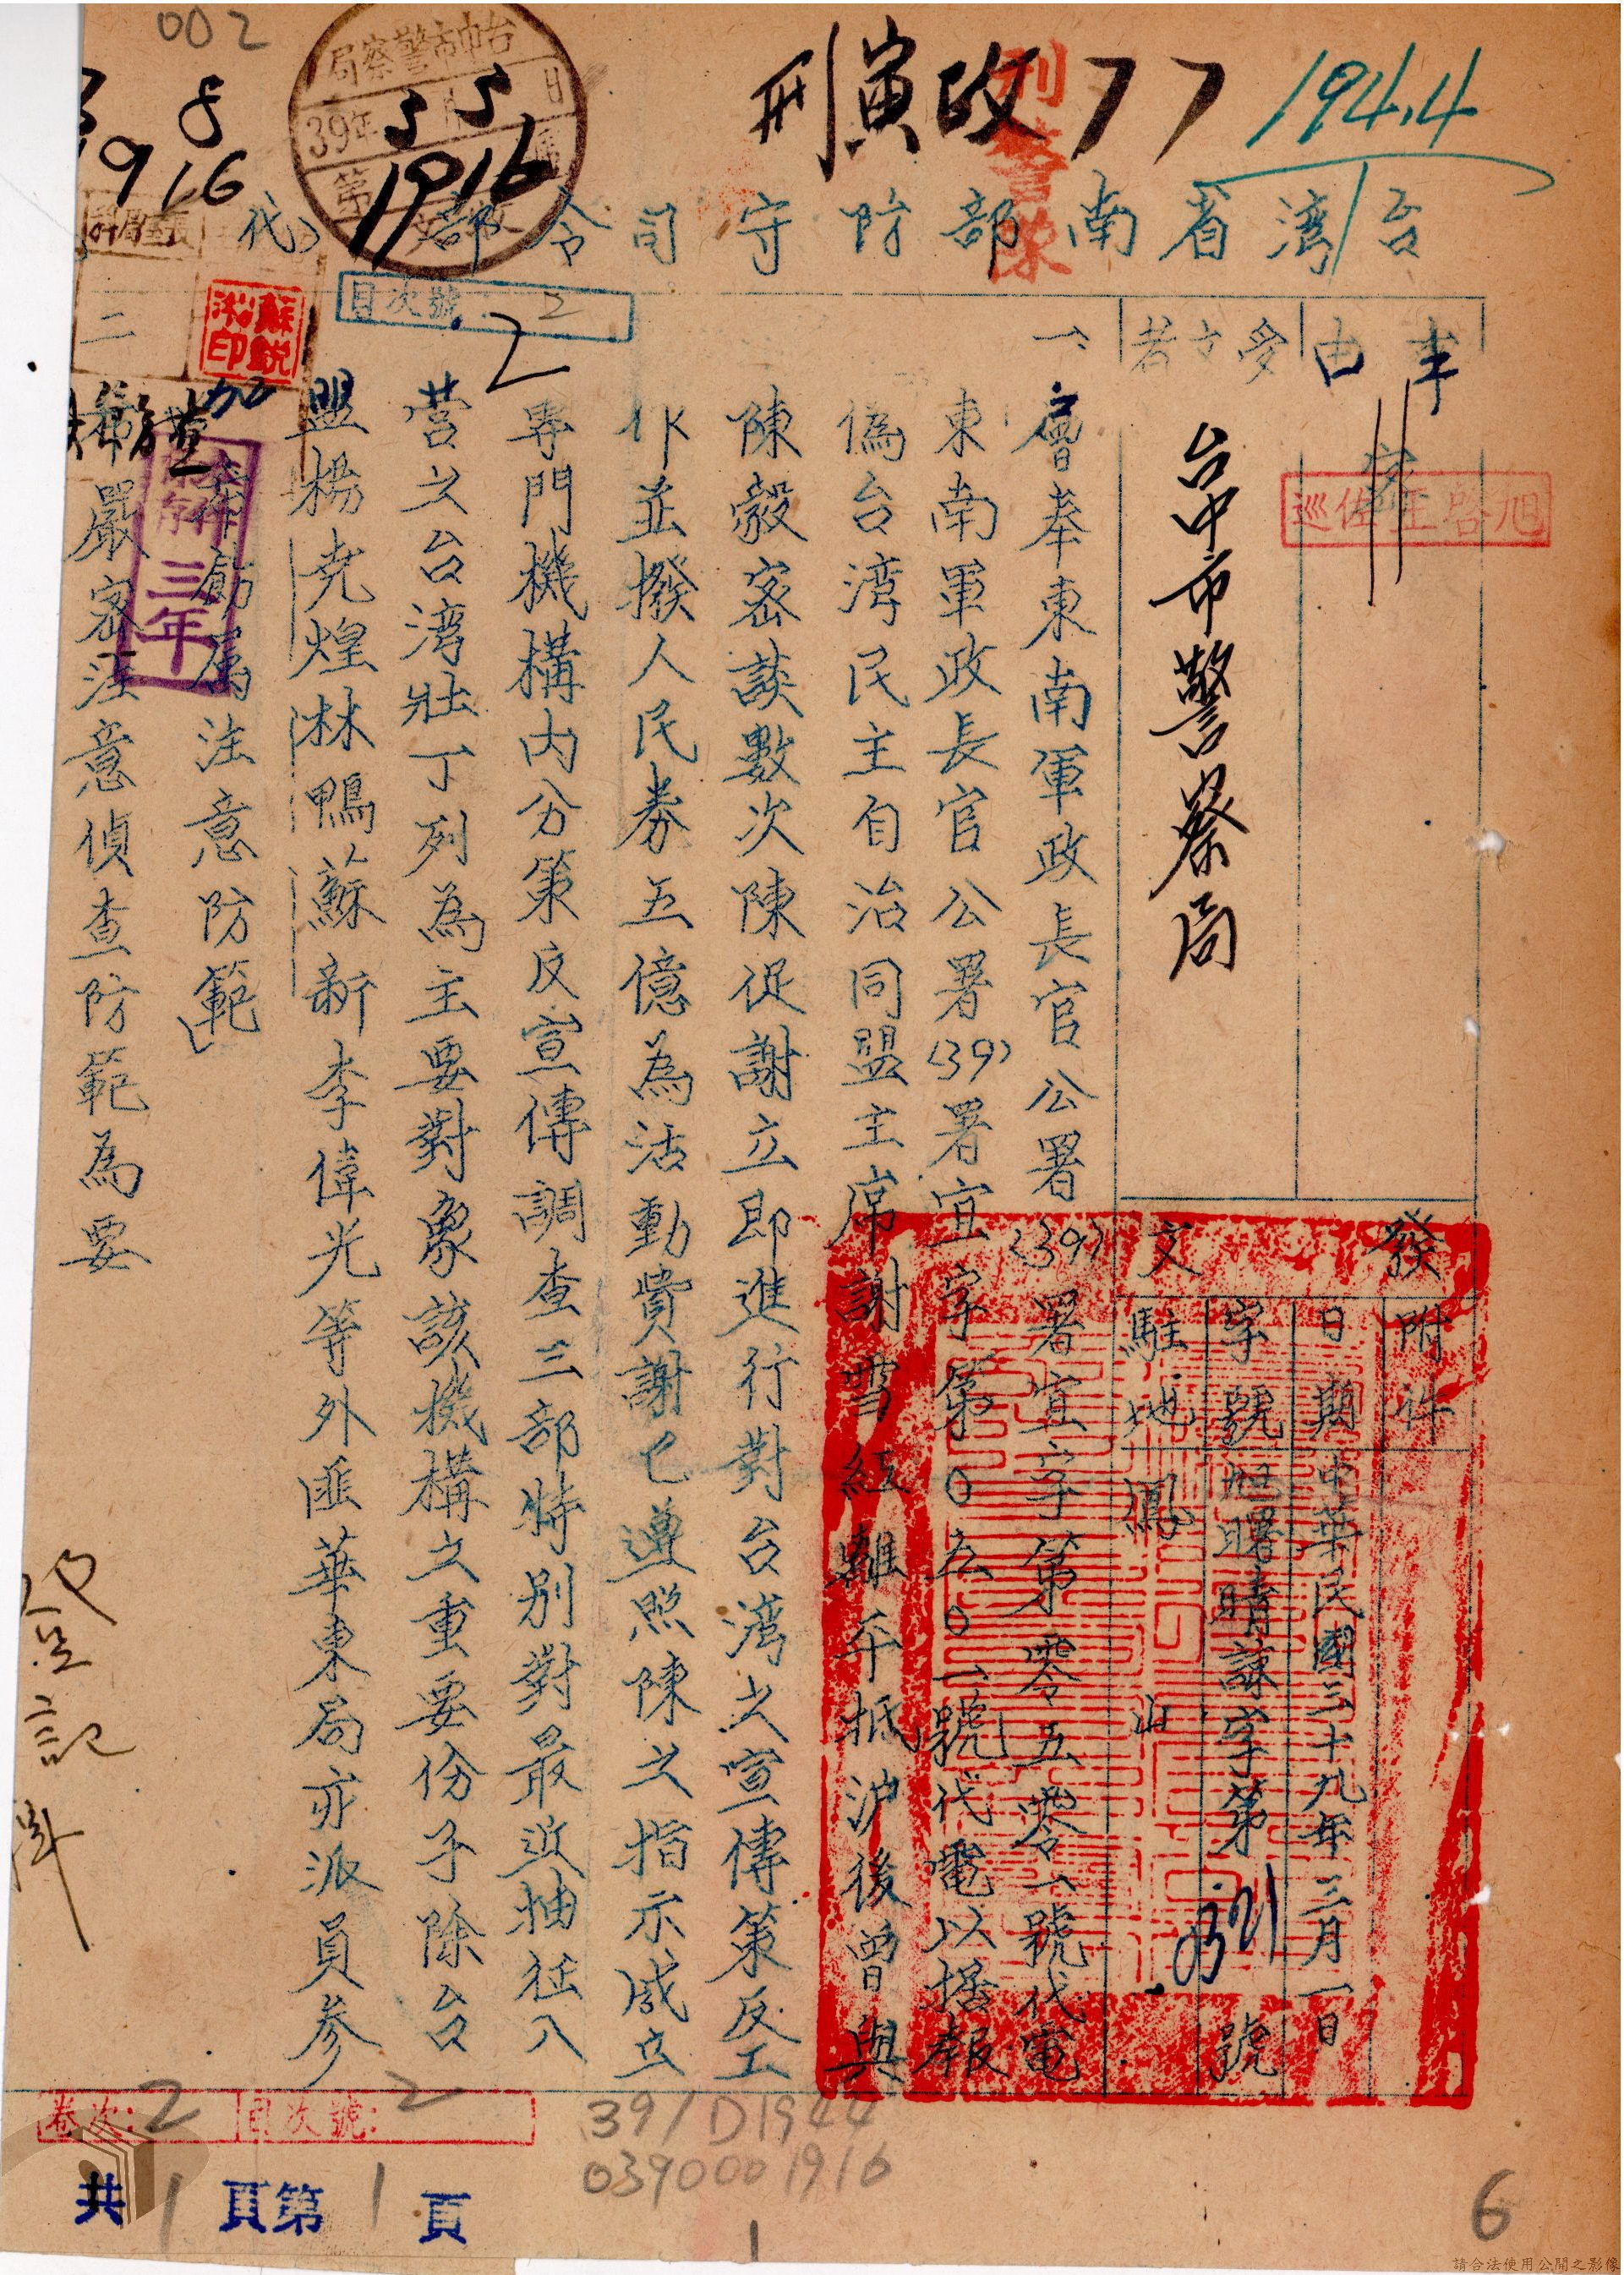 002
刑寅政77
194.4
台中市警察局
39年5月5日
第1916
5
1916
刑警隊
台灣省南部防守司令部代
目次號:2
2
事由
密
巡佐王啓旭
受文者
台中市警察局
發文
附件
日期 中華民國三十九年三月一日
字號 旭曙晴諫字第0321號
駐地 鳳山
一、層奉東南軍政長官公署(39)署宜字第零五零一號代電
東南軍政長官公署(39)署宜字第0五0一號代電以據報
偽台湾民主自治同盟主席謝雪紅離平抵沪後曾與
陳毅密談數次陳促謝立即進行對台灣之宣傳策反工
作並撥人民券五億為活動費謝已遵照陳之指示成立
專門機構內分策反宣傳調查三部特別對最近抽征入
营之台湾壯丁列為主要對象該機構之重要份子除台
盟楊克煌林鴨蘇新李偉光等外匪華東局亦派員参
加
等飭属注意防範
二
希嚴密注意偵查防範為要
蘇銳泓印
保存三年
登記
卷次:2 目次號:2
39/D1944
0390001916
共1頁第1頁
1
6
請合法使用公開之影像